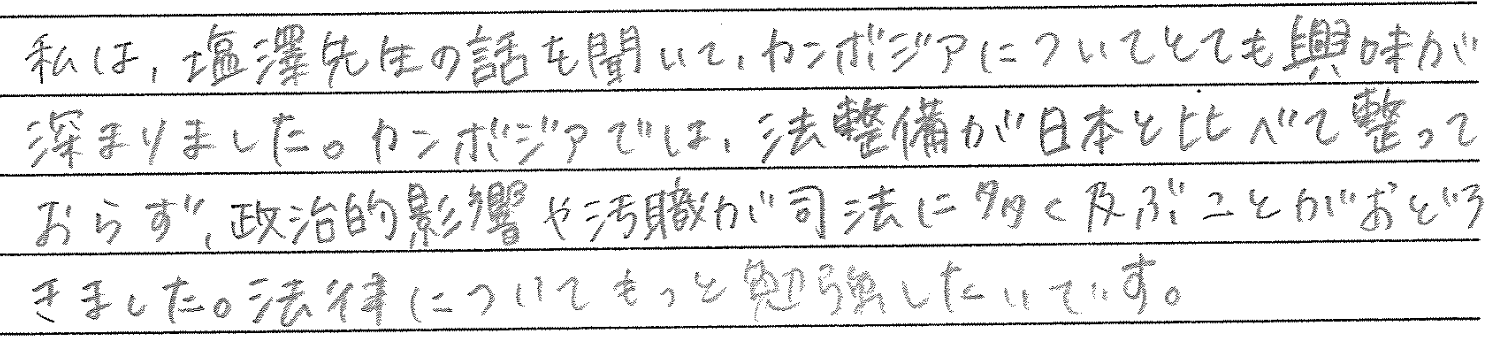 私は、塩澤先生の話を聞いて、カンボジアについてとても興味が
深まりました。カンボジアでは、法整備が日本と比べて整って
おらず、政治的影響や汚職が司法に多く及ぶことがおどろ
きました。法律についてもっと勉強したいです。